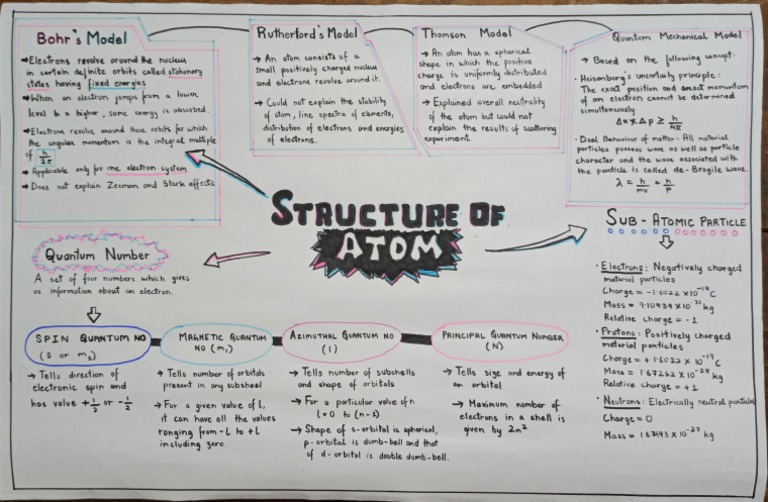 Bohr's Model
→ Electrons revolve around the nucleus
in certain definite orbits called stationary
states having fixed energies
→ When an electron jumps from a lower
level to a higher, some energy is absorbed.
→ Electrons revolve around those orbits for which
the angular momentum is the integral multiple
of h/2π
→ Applicable only for one electron system
→ Does not explain Zeeman and Stark effects
Rutherford's Model
→ An atom consists of a
small positively charged nucleus
and electrons revolve around it.
→ Could not explain the stability
of atom, line spectra of elements,
distribution of electrons and energies
of electrons.
Thomson Model
→ An atom has a spherical
shape in which the positive
charge is uniformly distributed
and electrons are embedded
→ Explained overall neutrality
of the atom but could not
explain the results of scattering
experiment.
Quantum Mechanical Model
• Based on the following concept.
• Heisenberg's uncertainty principle:
The exact position and exact momentum
of an electron cannot be determined
simultaneously
Δx × Δp ≥ h/4π
• Dual Behaviour of matter: All material
particles possess wave as well as particle
character and the wave associated with
the particle is called de-Brogile wave.
λ = h/mv = h/p
STRUCTURE OF
ATOM
Quantum Number
A set of four numbers which gives
us information about an electron.
SPIN QUANTUM NO
(s or ms)
→ Tells direction of
electronic spin and
has value +1/2 or -1/2
MAGNETIC QUANTUM
NO (m)
→ Tells number of orbitals
present in any subshell
→ For a given value of l,
it can have all the values
ranging from -l to +l
including zero.
AZIMUTHAL QUANTUM NO
(l)
→ Tells number of subshells
and shape of orbitals
→ For a particular value of n
l = 0 to (n-1)
→ Shape of s-orbital is spherical,
p-orbital is dumb-bell and that
of d-orbital is double dumb-bell.
PRINCIPAL QUANTUM NUMBER
(N)
→ Tells size and energy of
an orbital
→ Maximum number of
electrons in a shell is
given by 2n²
SUB-ATOMIC PARTICLE
• Electrons: Negatively charged
material particles
Charge = -1.6022 × 10⁻¹⁹ C
Mass = 9.10939 × 10⁻³¹ kg
Relative charge = -1
• Protons: Positively charged
material particles
Charge = +1.6022 × 10⁻¹⁹ C
Mass = 1.67262 × 10⁻²⁷ kg
Relative charge = +1
• Neutrons: Electrically neutral particles
Charge = 0
Mass = 1.67493 × 10⁻²⁷ kg